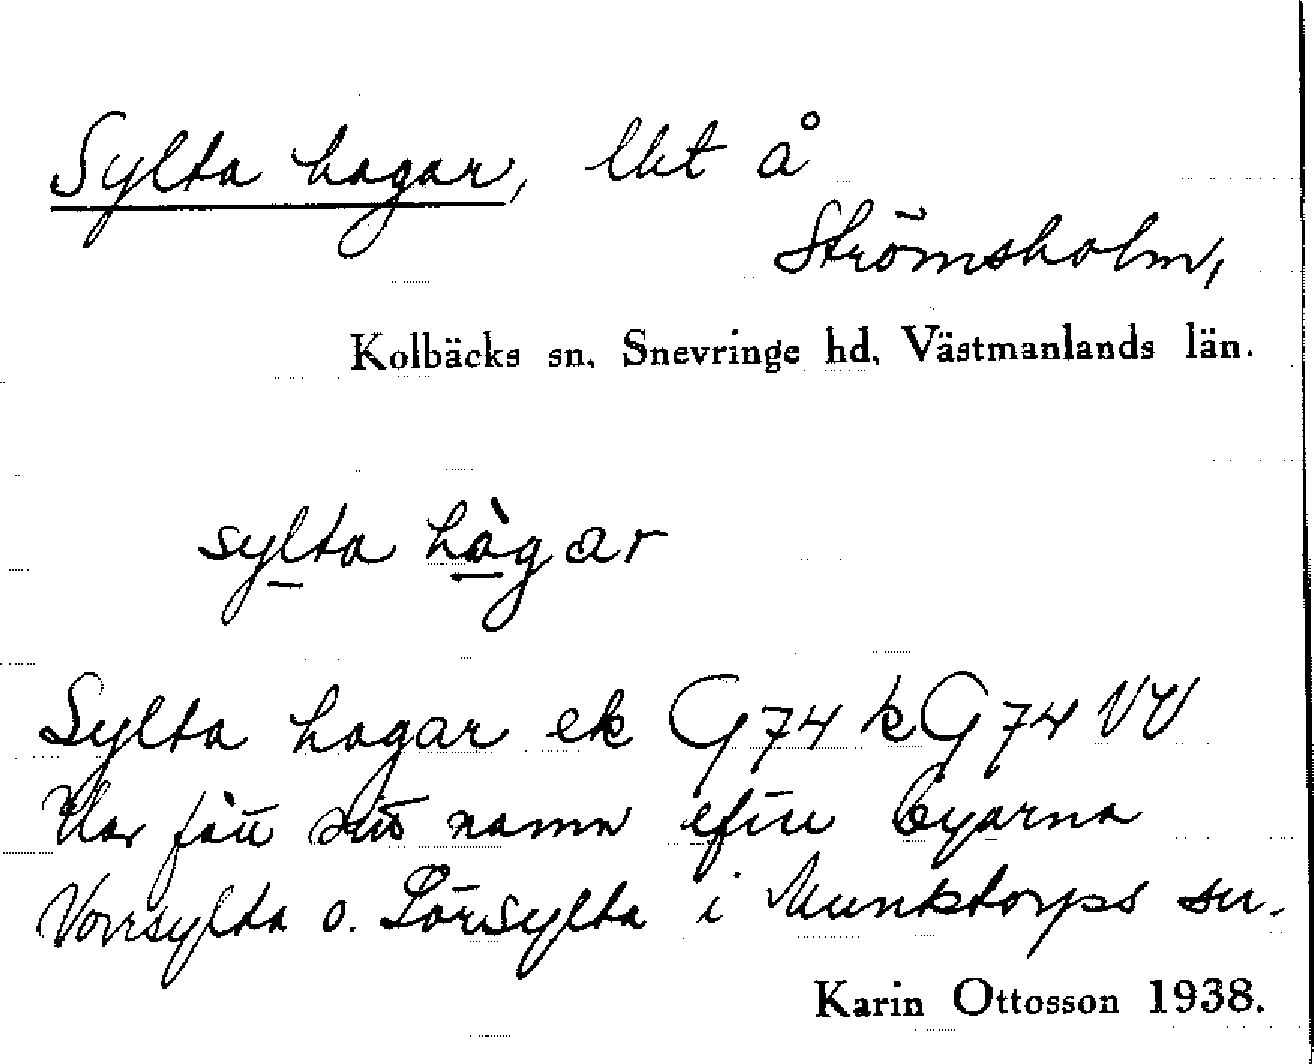 Sylta hagar, lht å
Strömsholm,
Kolbäcks sn, Snevringe hd, Västmanlands län.
sylta hàgar
Sylta hagar ek G 74 k G 74 VV
Har fått sitt namn efter byarna
Vorrsylta o. Lörsylta i Munktorps sn.
Karin Ottosson 1938.